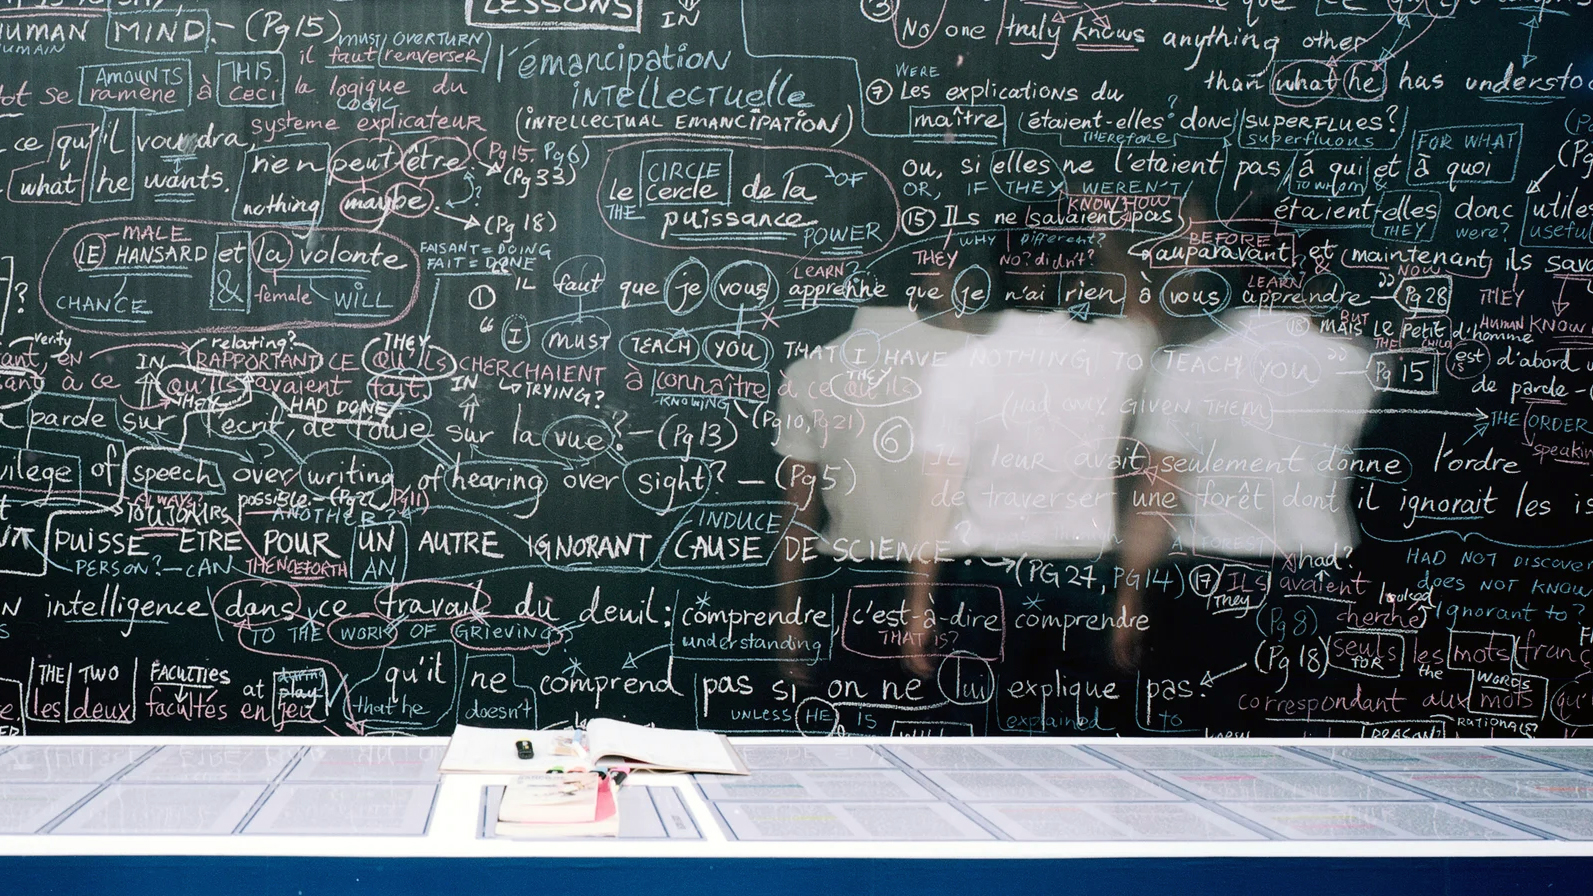 LESSONS
IN
HUMAN MIND.- (Pg 15)
HUMAIN
MUST/OVERTURN
il faut renverser
AMOUNTS THIS.
ramène à CECI
la logique du
LOGIC
système explicateur
ce qu'il voudra,
what he wants.
rien peut être.
nothing maybe.
(Pg 15, Pg 6)
(Pg 33)
?
(Pg 18)
l'émancipation
intellectuelle
(INTELLECTUAL EMANCIPATION)
CIRCLE OF
le cercle de la
THE
puissance
POWER
MALE
LE HANSARD et la volonte
& female WILL
CHANCE
FAISANT = DOING
FAIT = DONE
③
No one truly knows anything other
than what he has understo
WERE
⑦ Les explications du
maître étaient-elles donc superflues?
THEREFORE superfluous
FOR WHAT
ou, si elles ne l'étaient pas à qui et à quoi
OR, IF THEY WEREN'T TO WHOM &
étaient-elles donc utiles
THEY were? useful
KNOW HOW
⑮ Ils ne savaient pas
BEFORE
auparavant, et maintenant ils sava
THEY WHY different? No? didn't? & NOW THEY
LEARN? LEARN
① IL faut que je vous apprenne que je n'ai rien à vous apprendre Pg 28
I MUST TEACH YOU THAT I HAVE NOTHING TO TEACH YOU Pg 15
BUT HUMAN KNOW
MAIS LE Petit d'homme
THE CHILD
est d'abord u
is
de parole
verify relating? THEY
en IN RAPPORTANT CE QU'ILS CHERCHAIENT à connaître à ce qu'ils
TRYING? KNOWING THEY
à ce qu'ils avaient fait IN
THEY HAD DONE
(Pg 10, Pg 21)
(HAD ONLY GIVEN THEM
THE ORDER
speaking
parole sur l'écrit, de l'ouïe sur la vue? - (Pg 13)
⑥ Il leur avait seulement donne l'ordre
vilege of speech over writing of hearing over sight? - (Pg 5)
de traverser une forêt dont il ignorait les is
A FOREST
ALWAYS possible - (Pg 22, Pg 11)
TOUJOURS ANOTHER?
INDUCE
PUISSE ETRE POUR UN AUTRE IGNORANT CAUSE DE SCIENCE?
PERSON? - CAN THENCEFORTH AN
(PG 27, PG 14)
had?
⑰ Ils avaient
They looked
(Pg 8) cherché
HAD NOT DISCOVER
does NOT KNOW
Ignorant to?
N intelligence dans ce travail du deuil: comprendre, c'est-à-dire comprendre
TO THE WORK OF GRIEVING understanding THAT IS?
(Pg 18) seuls les mots franç
FOR the
WORDS
correspondant aux mots qu'
THE TWO FACULTIES at during play
les deux facultés en jeu
qu'il ne comprend pas si on ne lui explique pas.
that he doesn't UNLESS HE IS explained to